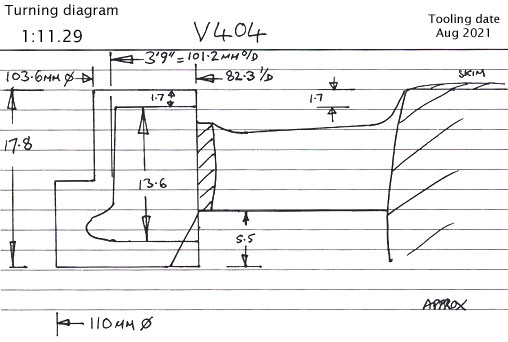 Turning diagram
1:11.29
V404
Tooling date
Aug 2021
3'9" = 101.2MM O/D
103.6MM Ø
82.3 I/D
SKIM
1.7
1.7
17.8
13.6
5.5
APPROX
110MM Ø